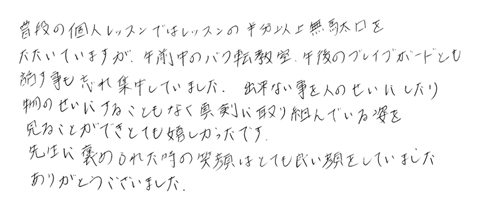 普段の個人レッスンではレッスンの半分以上無駄口を
たたいていますが、午前中のバク転教室、午後のブレイブボードとも
話す事も忘れ集中していました。出来ない事を人のせいにしたり
物のせいにすることもなく真剣に取り組んでいる姿を
見ることができとても嬉しかったです。
先生に褒められた時の笑顔はとても良い顔をしていました
ありがとうございました。